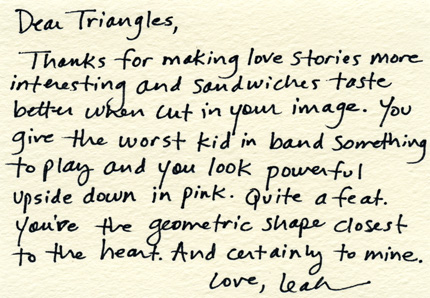 Dear Triangles,
Thanks for making love stories more
interesting and sandwiches taste
better when cut in your image. You
give the worst kid in band something
to play and you look powerful
upside down in pink. Quite a feat.
You're the geometric shape closest
to the heart. And certainly to mine.
Love, Leah